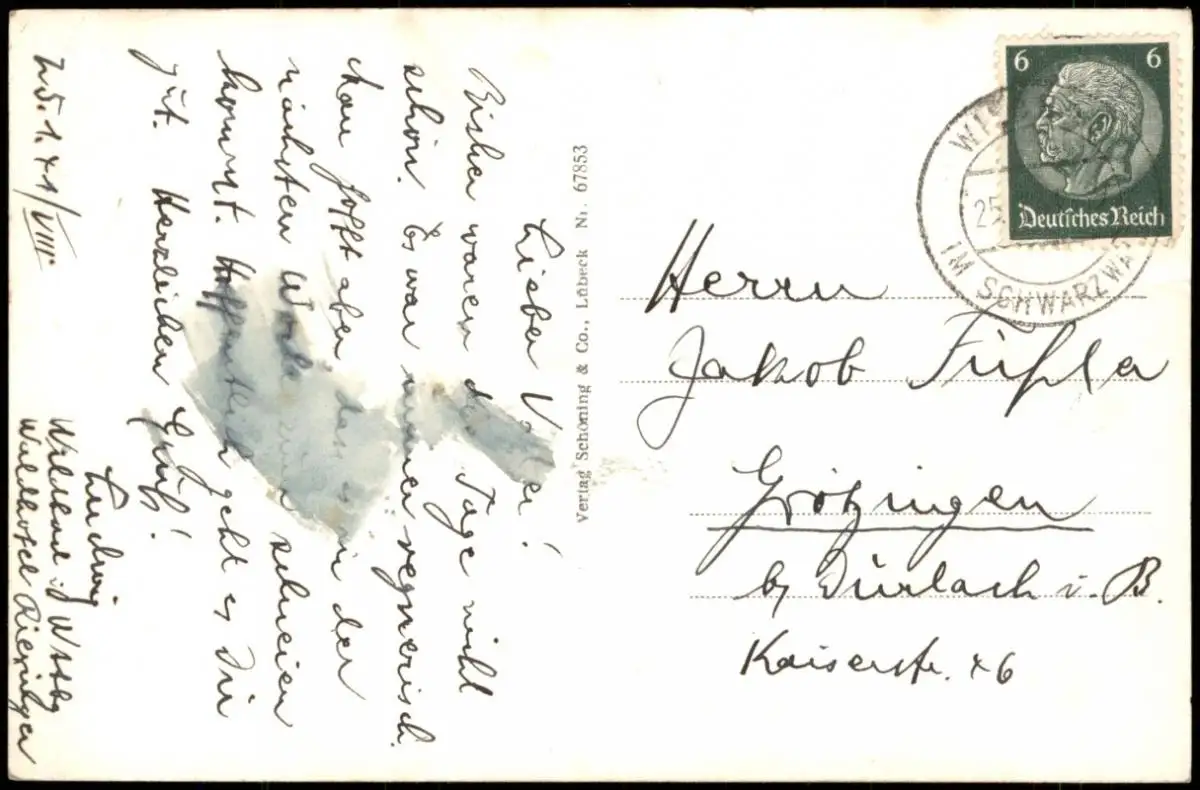 Lieber Vater!
Bisher waren die Tage nicht
schön. Es war immer regnerisch.
Man hofft aber, dass es in der
nächsten Woche
kommt. Hoffentlich geht es Dir
gut. Herzlichen Gruß!
Ludwig
Wildbad i/ Wttbg
Waldhotel Riexinger
25.1.41/VIII
Verlag Schöning & Co., Lübeck Nr. 67853
6 6
Deutsches Reich
WI
25.
IM SCHWARZWA
Herrn
Jakob Füßler
Grötzingen
by Dürlach i. B.
Kaiserstr. 46